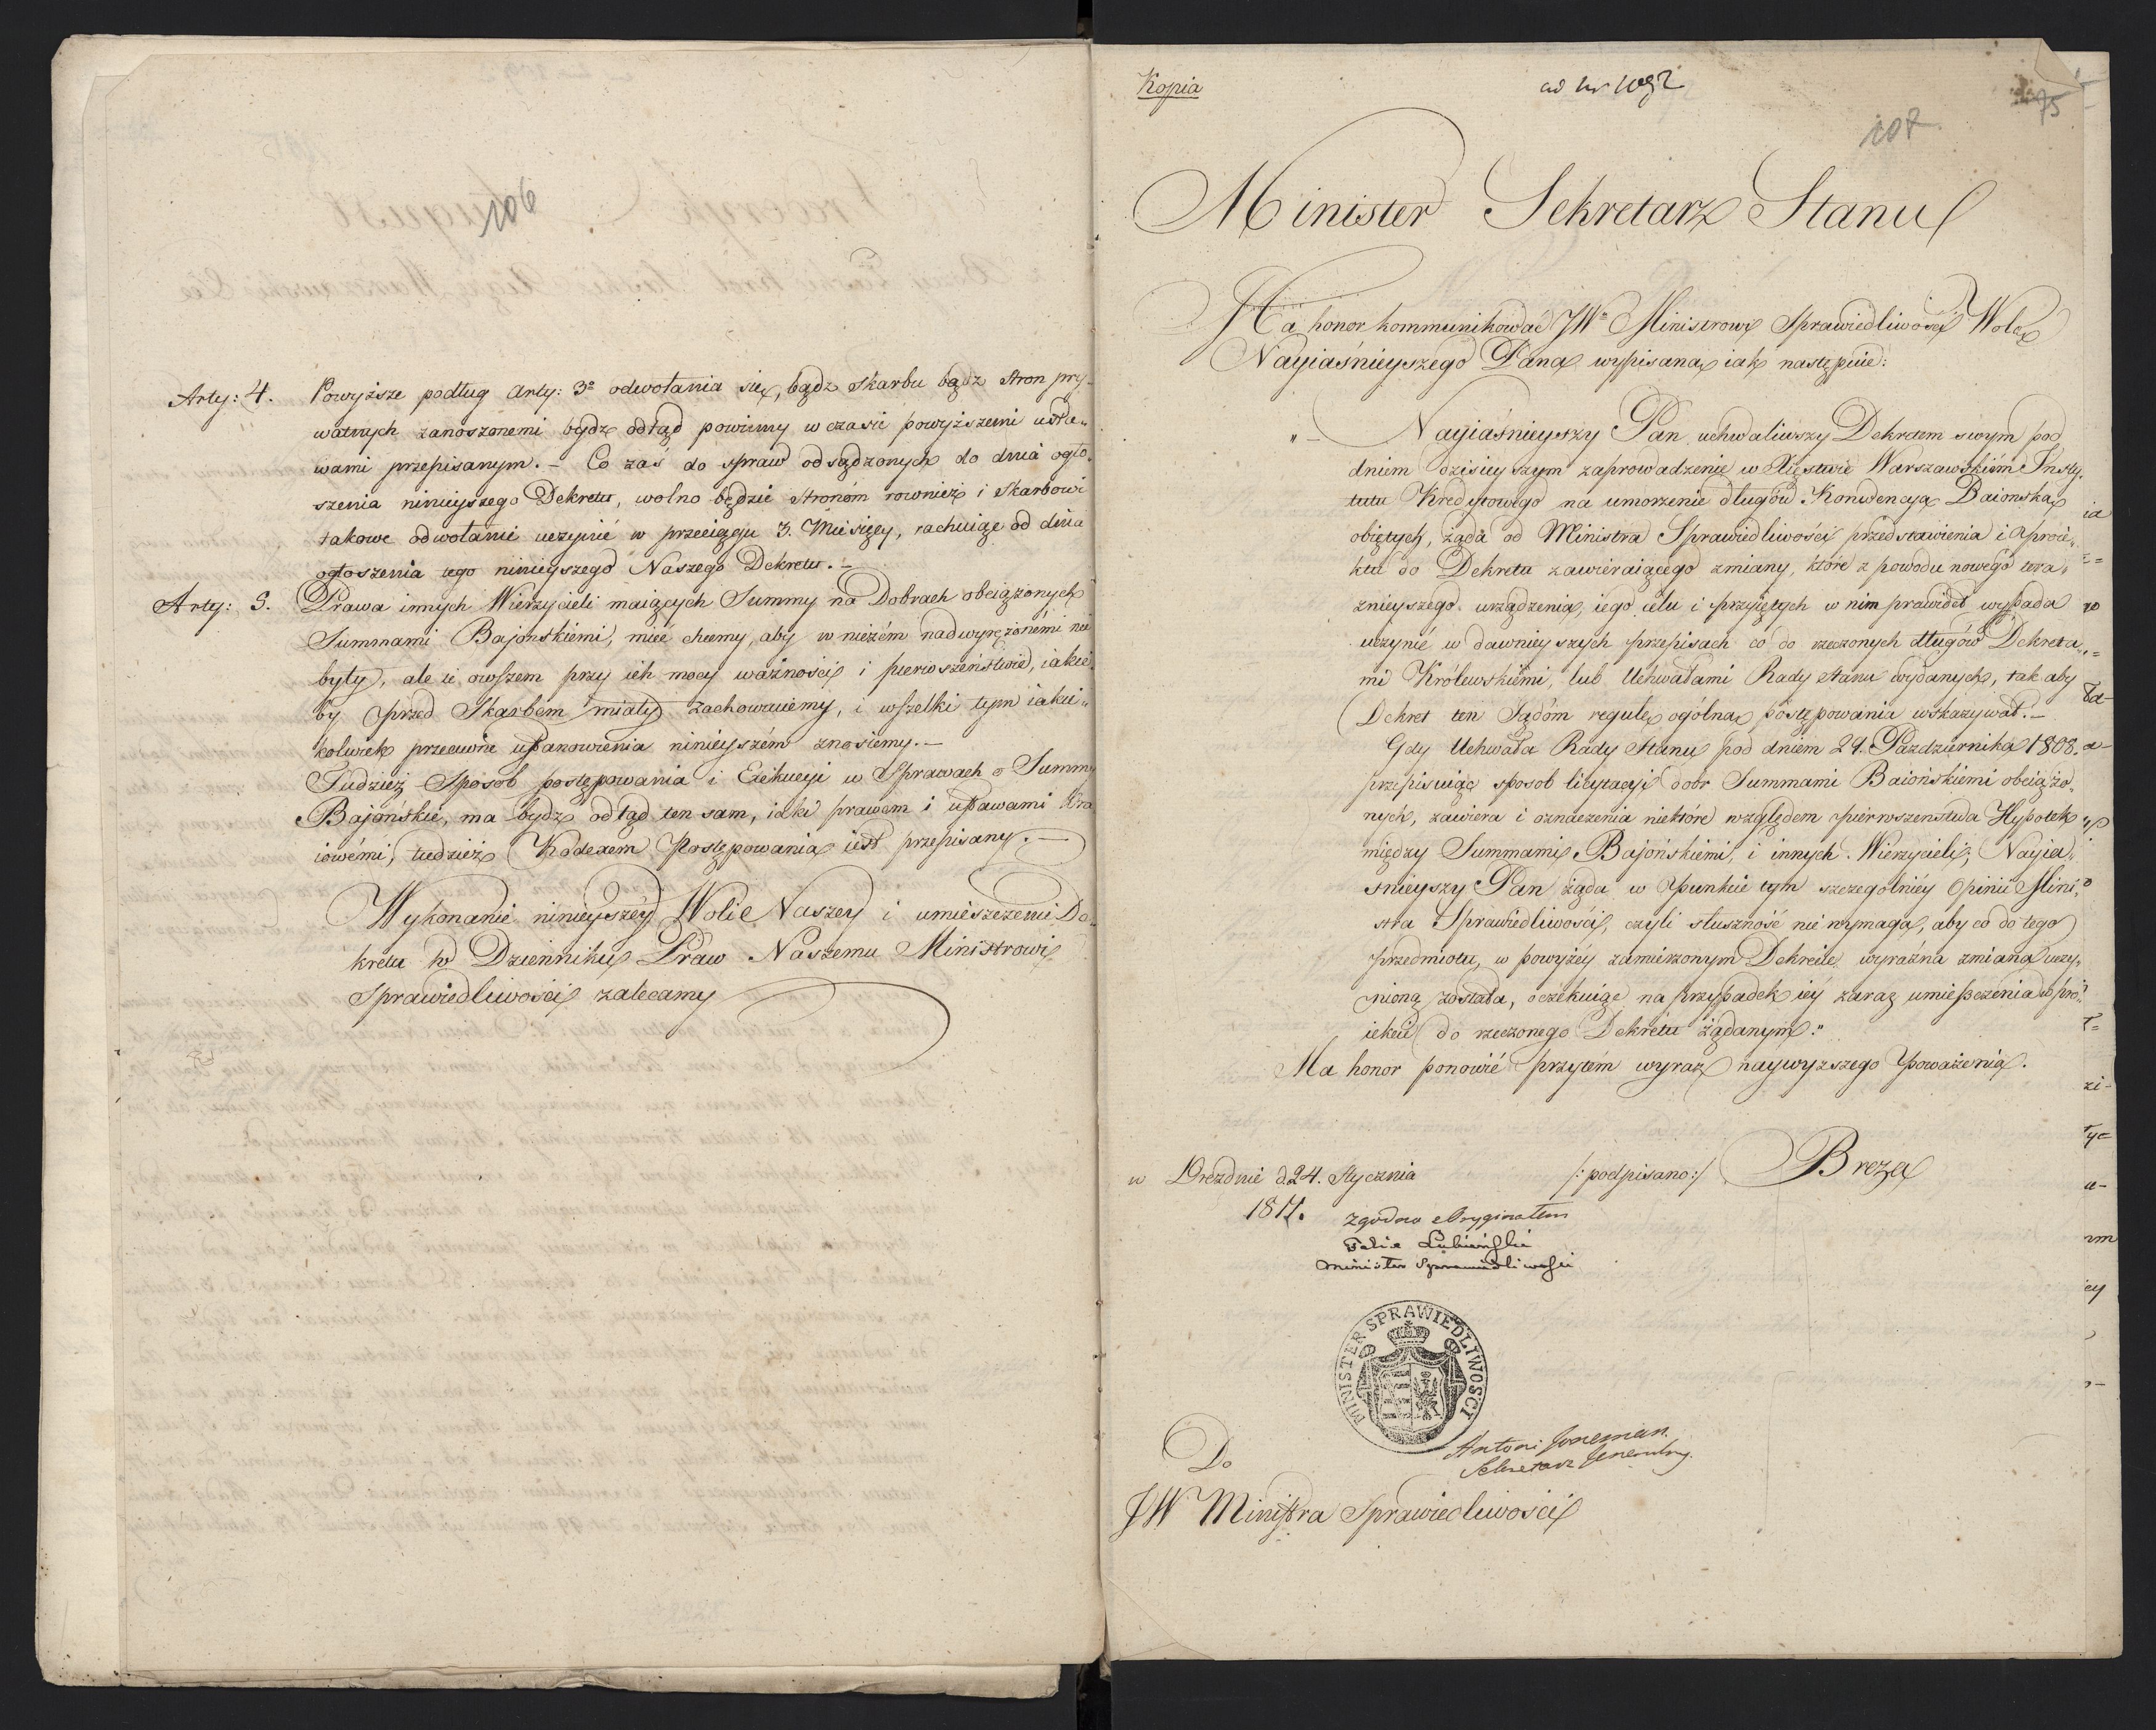 106
Arty: 4. Powyższe podług Arty: 3º odwołania się, bądz Skarbu bądz Stron pry-
watnych zanoszonemi bydz odtąd powinny w czasie powyższemi usta„
wami przepisanym. – Co zaś do spraw odsądzonych do dnia ogło„
szenia ninieyszego Dekretu, wolno będzie Stronóm rownież i Skarbowi
takowe odwołanie uczynić w przeciągu 3. Miesięcy, rachuiąc od dnia
ogłoszenia tego ninieyszego Naszego Dekretu. –
Arty: 5. Prawa innych Wierzycieli maiących Summy na Dobrach obciążonych
Summami Bajońskiemi, mieć chcemy, aby w niczém nadwyrężonémi nie
były, ale ie owszem przy ich mocy ważności i pierwszeństwie, iakie„
by przed Skarbem miały zachowuiemy, i wszelki tym iakie„
kolwiek przeciwne ustanowienia ninieyszém znosiemy. –
Tudzież Sposob postępowania i Exekucyi w Sprawach o Summy
Bajońskie, ma bydz odtąd ten sam, iaki prawem i ustawami Kra
iowémi, tudzież Kodexem Postępowania iest przepisany. –
Wykonanie ninieyszéy Woli Naszey i umieszczenie De„
kretu w Dzienniku Praw Naszemu Ministrowi
Sprawiedliwości zalecamy
Kopia
ad Nr 1092
107
75
Minister Sekretarz Stanu
Ma honor kommunikować JWº Ministrowi Sprawiedliwości Wolę
Nayiaśnieyszego Pana wypisaną iak następuie:
„– Nayiaśnieyszy Pan uchwaliwszy Dekretem swym pod
dniem dzisieyszym zaprowadzenie w Xięstwie Warszawskiém Insty„
tutu Kredytowego na umorzenie długów Konwencyą Baionską
obiętych, żąda od Ministra Sprawiedliwości przedstawienia i proie„
ktu do Dekretu zawieraiącego zmiany, które z powodu nowego tera„
znieyszego urządzenia, iego celu i przyiętych w nim prawideł wypada
uczynić w dawnieyszych przepisach co do rzeczonych długów Dekreta„
mi Królewskiemi, lub Uchwałami Rady Stanu wydanych, tak aby
Dekret ten Sądóm regułę ogólną postępowania wskazywał. –
Gdy Uchwała Rady Stanu pod dniem 29. Pazdziernika 1808.
przepisuiąc sposob licytacyi dobr Summami Baiońskiemi obciążo„
nych, zawiera i oznaczenia niektóre względem pierwszenstwa Hypotek
między Summami Bajońskiemi, i innych Wierzycieli; Nayia„
śnieyszy Pan żąda w Punkcie tym szczególniéy Opinii Mini„
stra Sprawiedliwości, czyli słuszność nie wymaga, aby co do tego
przedmiotu, w powyżéy zamierzonym Dekrecie wyraźna zmiana uczy„
nioną została, oczekuiąc na przypadek iéy zaraz umieszczenia w pro„
iekcie do rzeczonego Dekretu żądanym:"
Ma honor ponowić przytém wyraz naywyzszego Poważenia.
w Dreznie d. 24. Stycznia
1811.
/: podpisano :/ Breza
Zgodno z Oryginałem
Felix Lubieński
Minister Sprawiedliwości
MINISTER SPRAWIEDLIWOSCI
Sekretarz Jeneralny.
Do
JW Ministra Sprawiedliwości